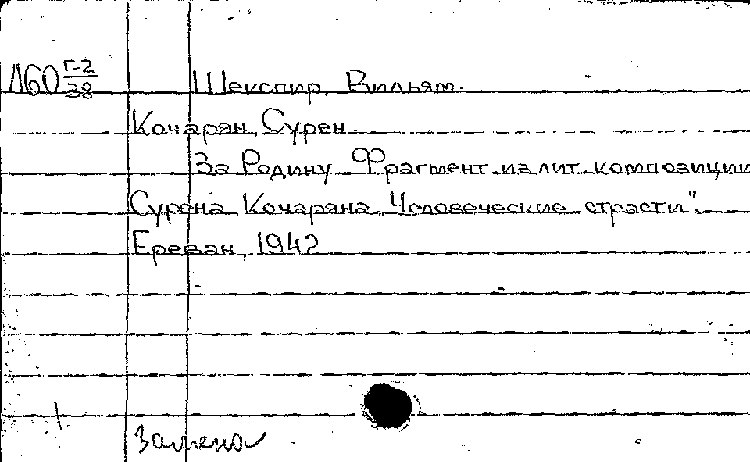 Л60 Г-2/38 Шекспир, Вильям.
Кочарян, Сурен
За Родину. Фрагмент из лит. композиции
Сурена Кочаряна „Человеческие страсти".
Ереван, 1942
Замена